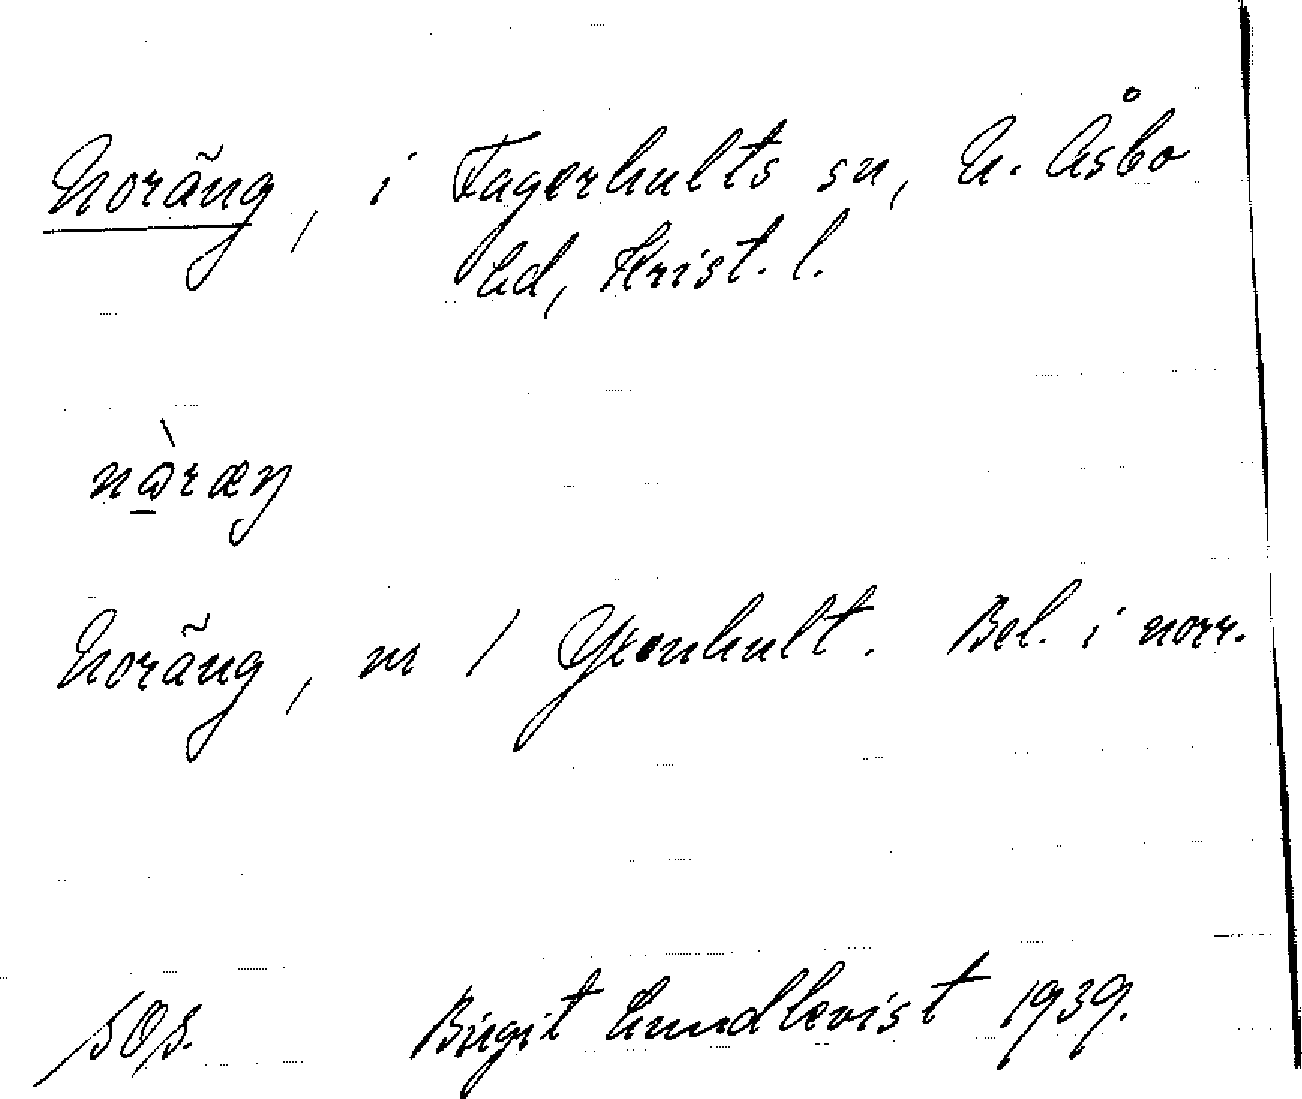 Noräng, i Fagerhults sn, N. Åsbo
hd, Krist. l.
nòræŋ
Noräng, m / Grönhult. Bel. i norr.
Birgit Lundkvist 1939.